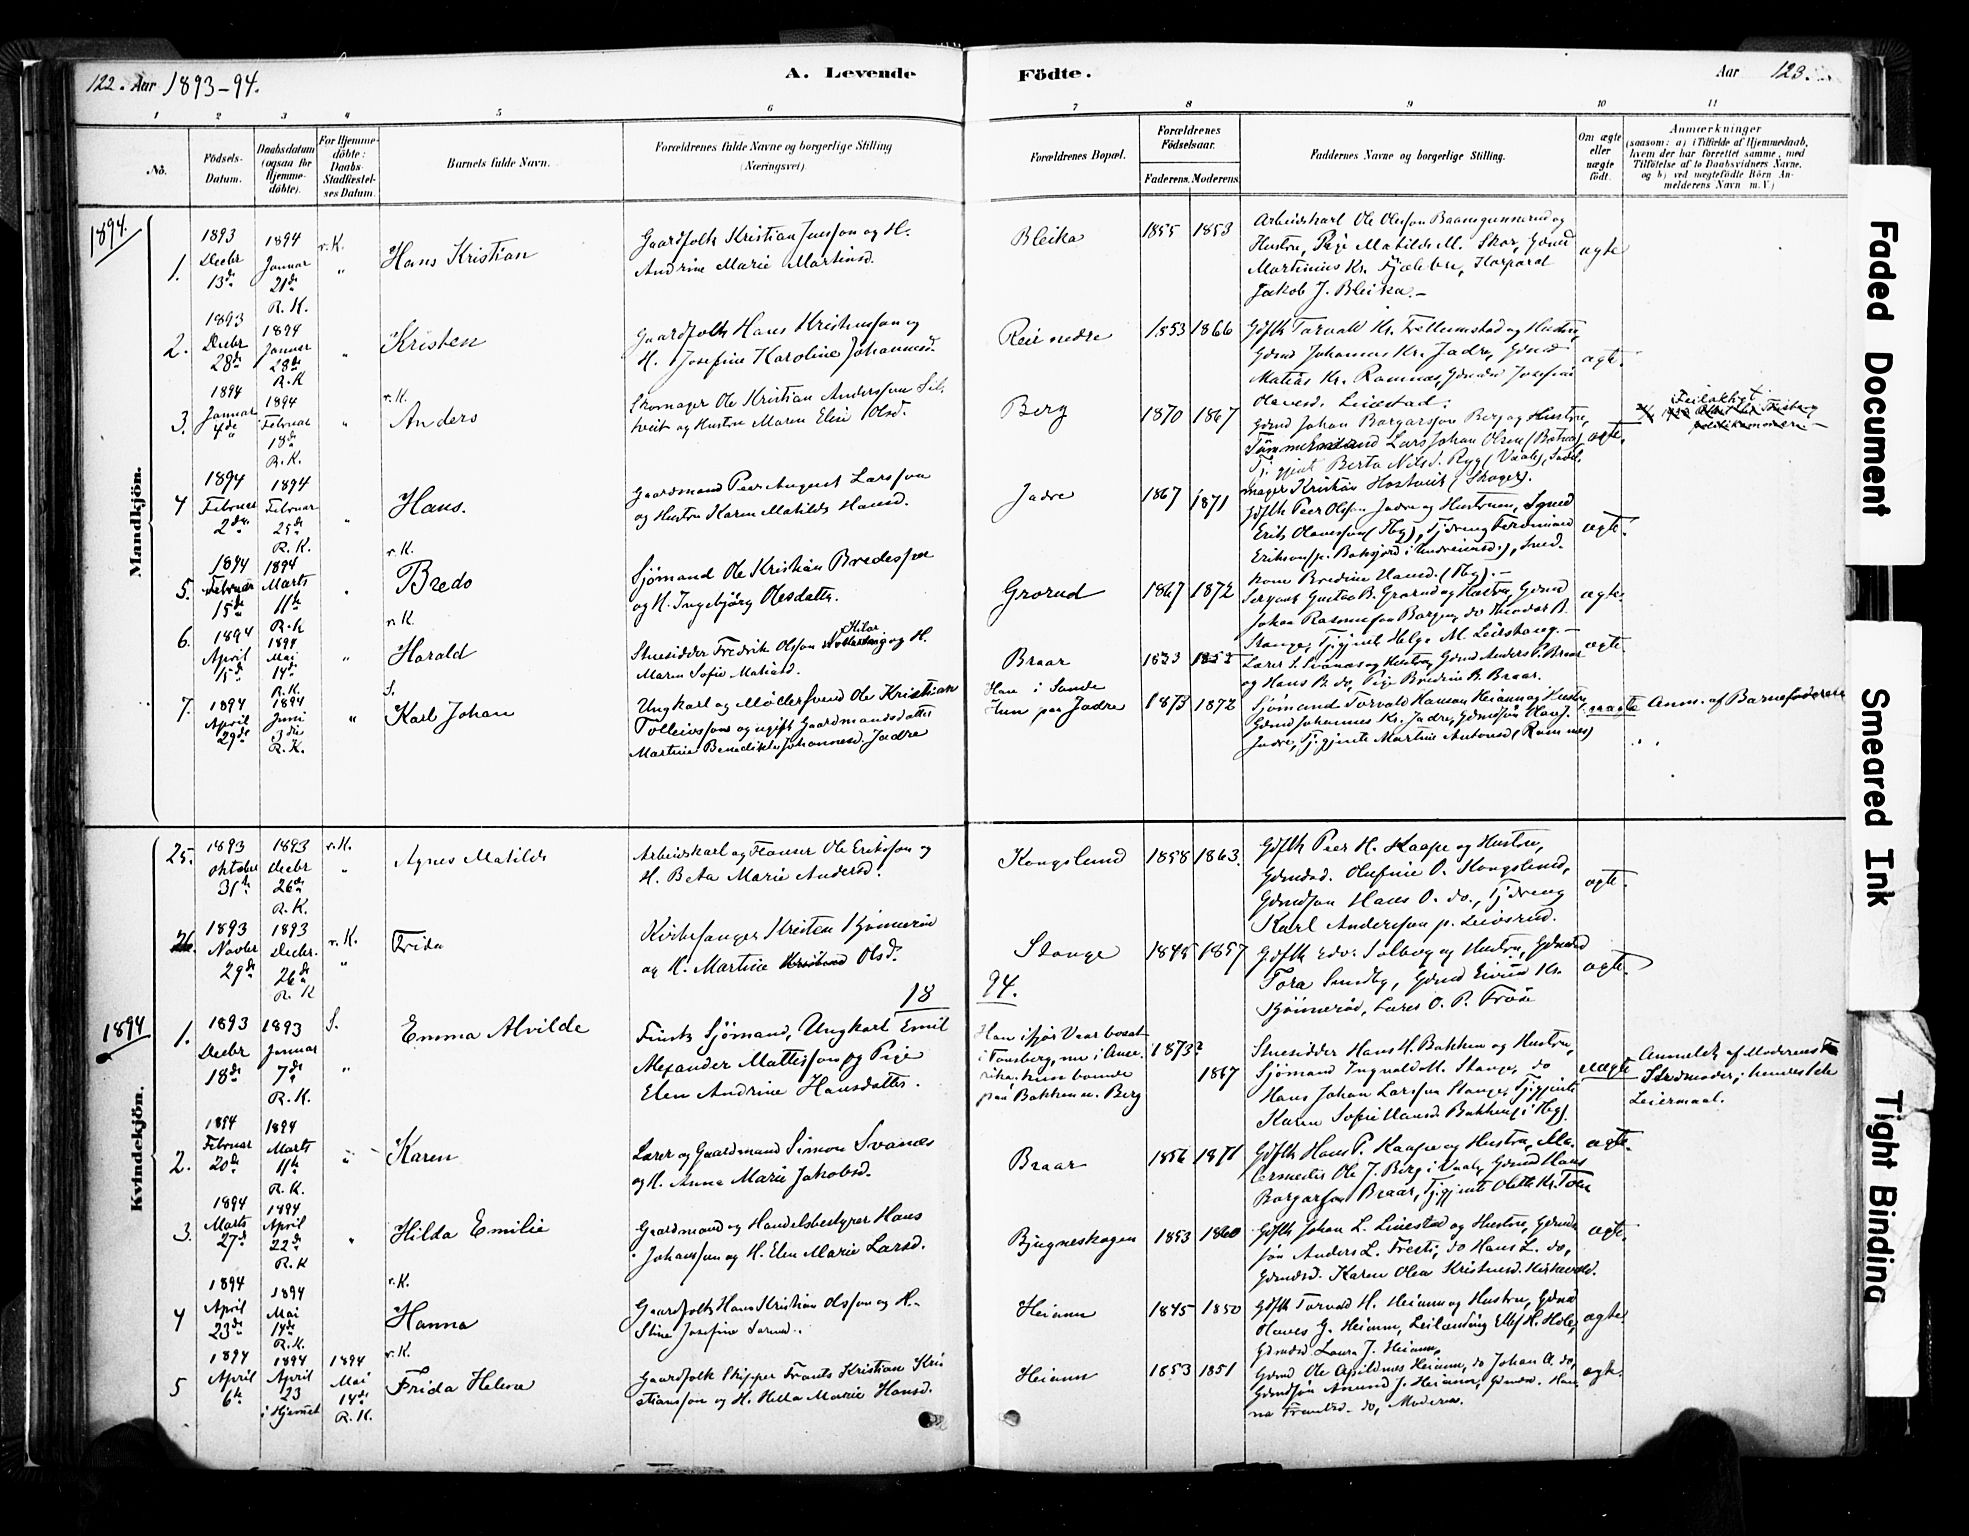 122. Aar 1893-94.
A. Levende
Födte.
Aar 123.
1 2 3 4 5 6 7 8 9 10 11
No.
Födsels-
Datum.
Daabsdatum
(ogsaa for
Hjemme-
döbte).
For Hjemme-
döbte:
Daabs-
Stadfæstel-
ses Datum.
Barnets fulde Navn.
Forældrenes fulde Navne og borgerlige Stilling
(Næringsvei).
Forældrenes Bopæl.
Forældrenes
Födselsaar.
Faderens. Moderens.
Faddernes Navne og borgerlige Stilling.
Om ægte
eller
uægte
födt.
Anmærkninger
(saasom: a) i Tilfælde af Hjemmedaab,
hvem der har forrettet samme, med
Tilföielse af to Daabsvidners Navne.
og b) ved uægtefödte Börn An-
melderens Navn m. V.)
Mandkjön.
1894.
1.
1893
Decbr
13de
1894
Januar
21de
R. K.
r. K.
"
Hans Kristian
Gaardfolk Kristian Jensson og H.
Andrine Marie Martinsd.
Bleika
1855 1853
Arbeidskarl Ole Olesson Baanegunnerud og
Hustru, Pige Matilde M. Skar, Gdmd
Martinius Kr. Fjæleber, Korporal
Jakob J. Bleika.-
ægte
2.
1893
Decbr
28de
1894
Januar
28de
R. K
"
Kristen
Gaardfolk Hans Kristensson og
H. Josefine Karoline Johannesd.
Reir nedre
1853 1866
Gdflk Torvald Kr. Frellumstad og Hustru,
Gdmd Johannes Kr. Jadre, Gdmd
Matias Kr. Ramnæs, Josefine
Olavesd. Leiestad.
ægte.
3.
1894
Januar
4de
1894
Februar
18de
R. K.
r. K.
"
Anders
Skomager Ole Kristian Andersson Sil-
tveit og Hustru Maren Elin Olsd.
Berg
1870 1867
Gdmd Johan Borgarsson Berg og Hustru,
Tømmermand Lars Johan Olsen (Botne),
Tj. gjent Berta Nilsd. Ryg (Vaale), Sadel-
mager Kristian Hostveit (Skoger).
ægte.
Feilagtigt
4
1894
Februar
2den
1894
Februar
25de
R. K.
"
Hans.
Gaardmand Peer August Larsson
og Hustru Karen Matilde Hansd.
Jadre
1867 1871
Gdflk Peer Olsson Jadre og Hustrum, Sgmd
Erik Olavesson (Hbg), Tjdreng Ferdinand
Erikson
kone Bredine Hansd. (Hbg).-
ægte.
5.
1894
Februar
15de
1894
Marts
11te
R. K
r. K.
"
Bredo
Sjømand Ole Kristian Bredesson
og H. Ingebjörg Olesdatter.
Grorud
1867 1872
Sergeant Gustav B. Grorud og Hustru, Gdmd
Johan Rasmusson Borgen, do Theodor B.
Stange, Tjgjente Helga M. Leirstang.-
ægte.
6.
1894
April
15de
1894
Mai
14de
R. K.
r. K.
"
Harald
Stuesidder Fredrik Olsson og H.
Maren Sofie Matiasd.
Braar
1853 1852
Lærer S. Svanæs og Hustru, Gdmd Anders P. Braar
og Hans B. do, Pige Bredine B. Braar.
ægte.
7.
1894
April
29de
1894
Juni
3die
R. K.
S.
"
Karl Johan
Ungkarl og Møllersvend Ole Kristian
Tolleivsson og ugift Gaardmandsdatter
Martine Benedikte Johannesd. Jadre
Han i Sande
Hun paa Jadre
1873 1872
Sjømand Torvald Hanson Heiann og Hustru,
Gdmd Johannes Kr. Jadre, Gdmdsøn Olav J.
Jadre, Tjgjente Martine Antonsd (Ramnes)
uægte
Anm. af Barnefaderen
Kvindekjön.
25.
1893
Oktober
31te
1893
Decbr
26de
R. K.
r. K.
"
Agnes Matilde
Arbeidskarl og Ole Eriksson og
H. Beta Marie Andersd.
Kongslund
1858 1863.
Gdflk Peer H. Kaape og Hustru,
Gdmdsd. Olefine O. Kongslund,
Gdmdsøn Hans O. do., Tjdreng
Karl Andersson p. Leivsrud.
ægte.
26.
1893
Novbr
29de
1893
Decbr.
26de
R. K
r. K.
"
Frida
Kirkesanger Kristen Bjønnerød
og H. Martine Olsd.
Stange
1845 1857
Gdflk Edv. Solberg og Hustru, Gdmdsd
Tora Sundby, Gdmd Eivind Kr.
Bjönnerød, Lærer O. P. Frøse
ægte.
18 94.
1894
1.
1893
Decbr
18de
1893
Januar
7de
R. K.
S.
"
Emma Alvilde
Sjömand, Ungkarl Emil
Alexander Mattisson og Pige
Elen Andrine Hansdatter.
Han ifjor Vaar bosat
i Tønsberg, nu i Ame-
rika, hun boende
paa Bakken u. Berg
1873? 1867
Stuesidder Hans H. Bakken og Hustru,
Sjömand Ingvald M. Stange, do
Hans Johan Larsson Stange, Tjgjente
Karen Sofie Hansd. Bakken (i Hbg).
uægte
Anmeldt af Moderens
Stedmoder; hendes 1ste
Leiermaal.
2.
1894
Februar
20de
1894
Marts
11te
R. K.
"
Karen
Lærer og Gaardmand Simon Svanæs
og H. Anna Marie Jakobsd.
Braar
1856 1871
Gdflk Hans P. Kaape og Hustru, Ma-
lermester Ole J. Berg i Vaale, Gdmd Hans
Borgarson Braar, Tjgjente Olette Kr. Toen
ægte.
3.
1894
Marts
27de
1894
April
22de
R. K
"
Hilda Emilie
Gaardmand og Handelsbestyrer Hans
Johansson og H. Elen Marie Larsd.
Bjugneskogen
1853 1860
Gdflk Johan L. Linestad og Hustru, Gdmds-
søn Anders L. Fresti, do Hans L. do,
Gdmdsd. Karen Olea Kristensd.
ægte.
4
1894
April
23de
1894
Mai
14de
R. K.
r. K.
Hanna
Gaardfolk Hans Kristian Olsson og H.
Stine Josefine
Heiann
1845 1850
Gdflk Torvald H. Heiann og Hustru, Gdmd
Olaves G. Heiann, Leilænding Ellef H. Hole,
Gdmdsd Laura J. Heiann.
ægte
5
1894
April
6te
1894
April
23
i Hjemmet
1894
Mai
14de
R. K.
r. K.
Frida Helene
Gaardfolk Skipper Frants Kristian Kris
tiansson og H. Helle Marie Hansd.
Heiann
1853 1851
Gdmd Ole Heiann, do Johan A. do,
Gdmdsøn Anund J. Heiann, Gdmdsd. Han-
na Frantsd. do, Moderen.
ægte.
Faded Document
Smeared Ink
Tight Binding